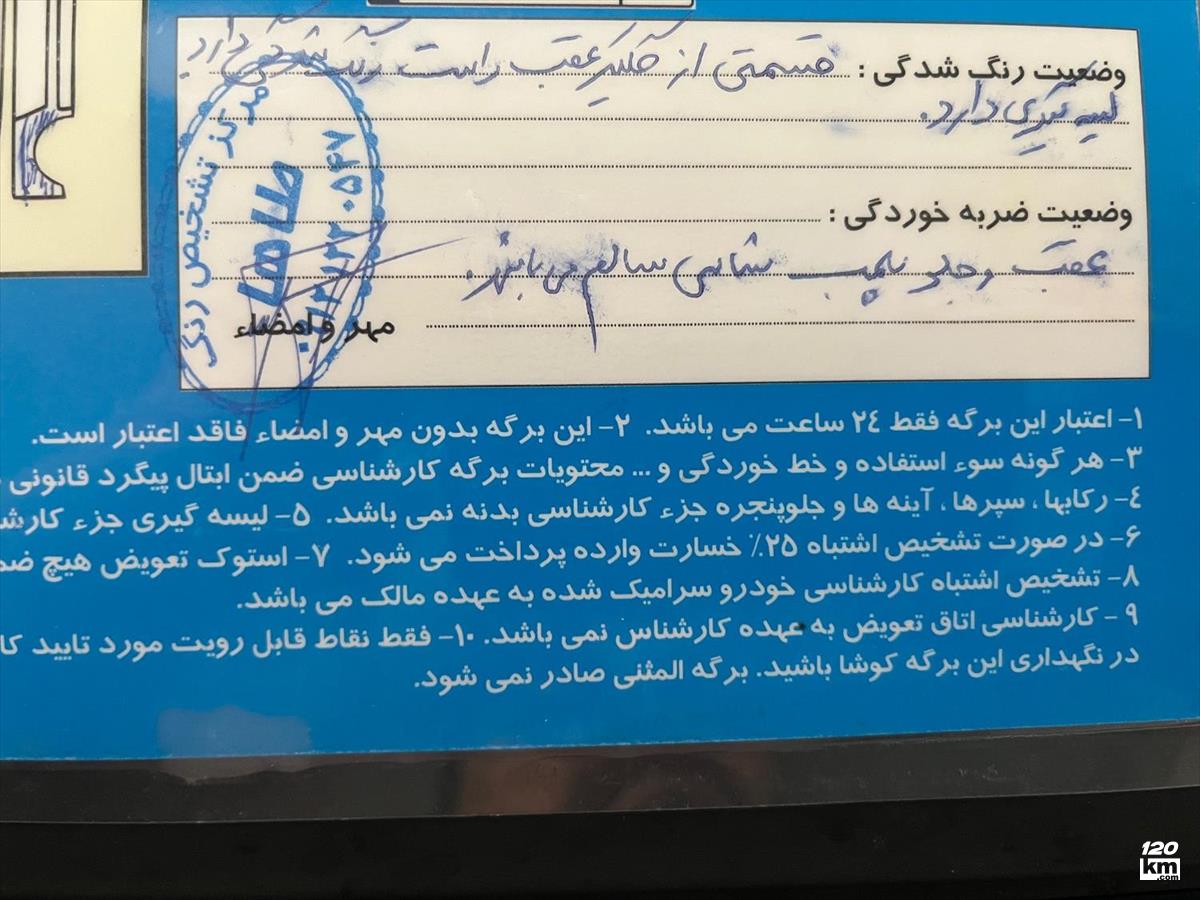 وضعیت رنگ شدگی : قسمتی از گلگیر عقب راست رنگ شدگی دارد
لیسه گیری دارد.
وضعیت ضربه خوردگی :
عقب و جلو پلمپ شاسی سالم می باشد.
مهر و امضاء
مرکز تشخیص رنگ
طاها
۱- اعتبار این برگه فقط ۲۴ ساعت می باشد. ۲- این برگه بدون مهر و امضاء فاقد اعتبار است.
۳- هر گونه سوء استفاده و خط خوردگی و ... محتویات برگه کارشناسی ضمن ابتال پیگرد قانونی
۴- رکابها، سپرها، آینه ها و جلوپنجره جزء کارشناسی بدنه نمی باشد. ۵- لیسه گیری جزء کارش
۶- در صورت تشخیص اشتباه ۲۵٪ خسارت وارده پرداخت می شود. ۷- استوک تعویض هیچ ضم
۸- تشخیص اشتباه کارشناسی خودرو سرامیک شده به عهده مالک می باشد.
۹- کارشناسی اتاق تعویض به عهده کارشناس نمی باشد. ۱۰- فقط نقاط قابل رویت مورد تایید کا
در نگهداری این برگه کوشا باشید. برگه المثنی صادر نمی شود.
120
km
.com